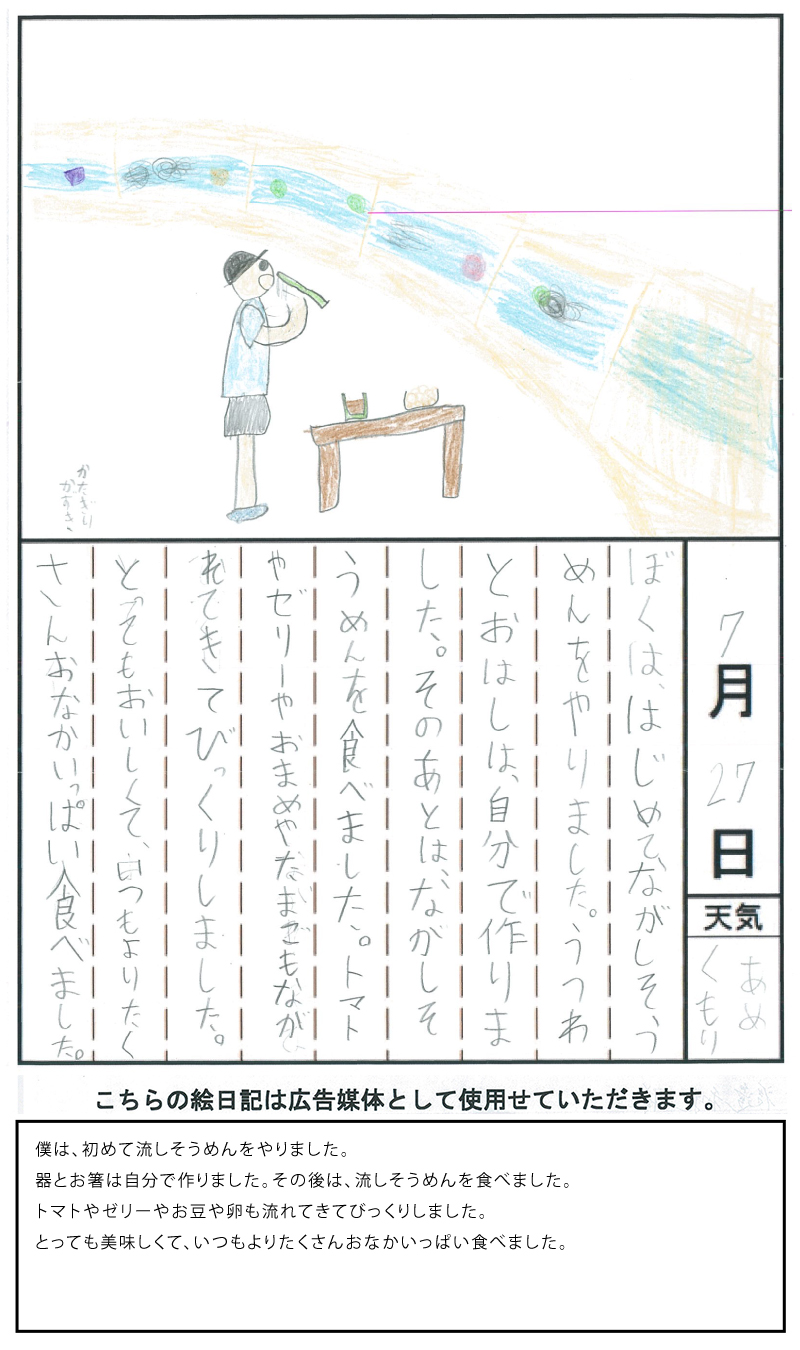 かたぎり
かずき
7月27日
天気
あめ
くもり
ぼくは、はじめてながしそう
めんをやりました。うつわ
とおはしは、自分で作りま
した。そのあとは、ながしそ
うめんを食べました。トマト
やゼリーやおまめやたまごもなが
れてきてびっくりしました。
とってもおいしくて、いつもよりたく
さんおなかいっぱい食べました。
こちらの絵日記は広告媒体として使用せていただきます。
僕は、初めて流しそうめんをやりました。
器とお箸は自分で作りました。その後は、流しそうめんを食べました。
トマトやゼリーやお豆や卵も流れてきてびっくりしました。
とっても美味しくて、いつもよりたくさんおなかいっぱい食べました。